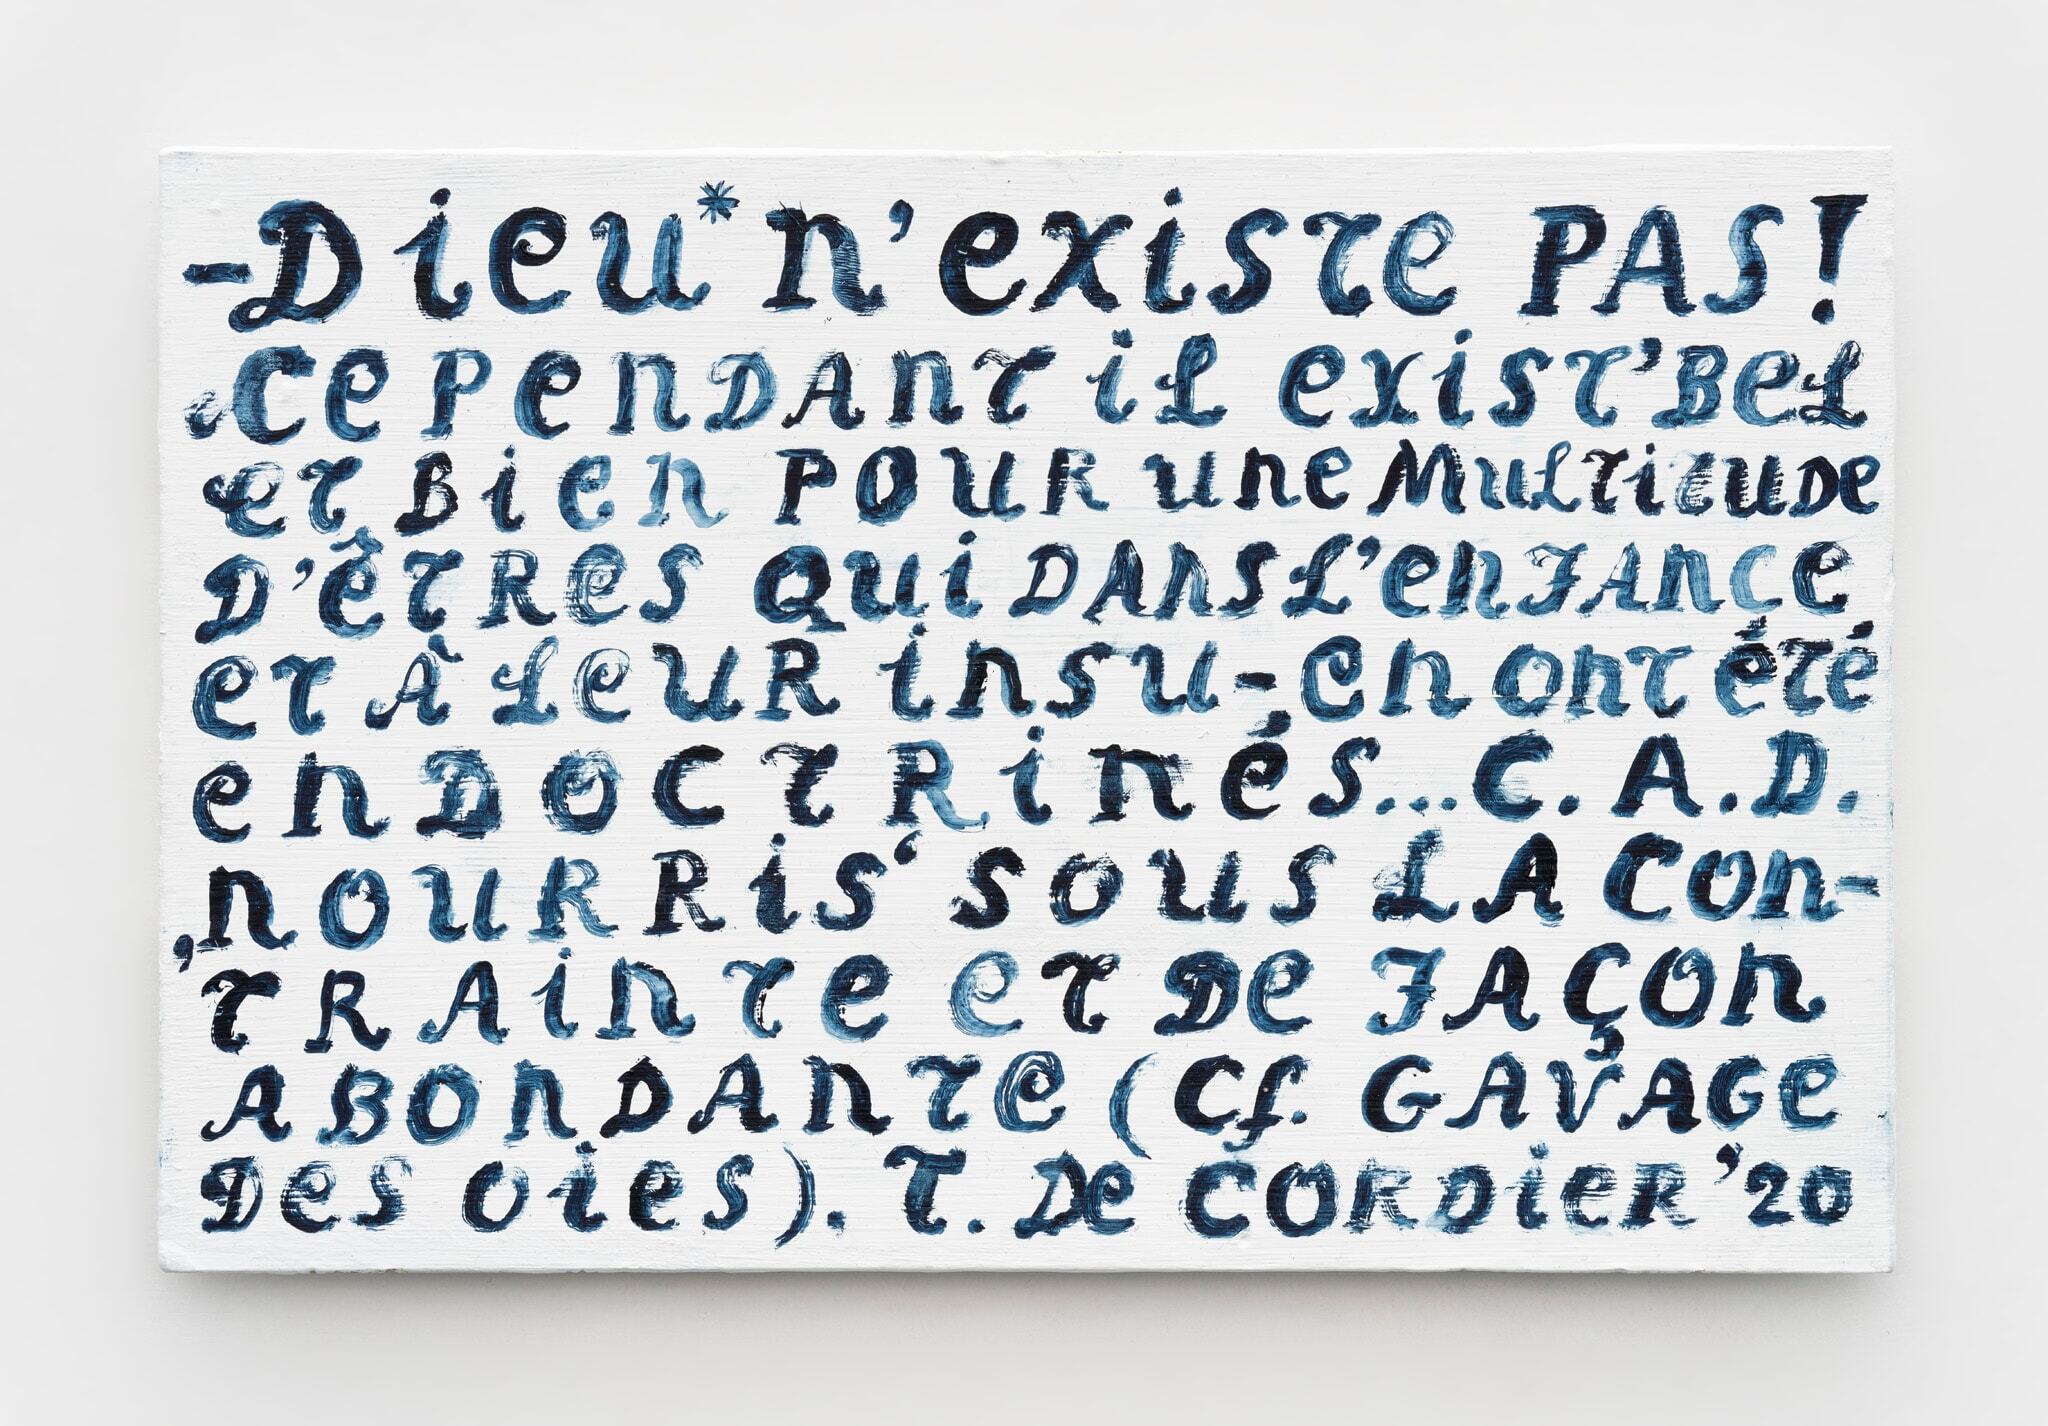 -Dieu* n'existe PAS!
.Cependant il exist'Bel
et Bien pour une Multitude
D'êtres qui dans l'enfance
et à leur insu-en ont été
endoctrinés... C.A.D.
,nourris' sous la con-
trainte et de façon
abondante (cf. Gavage
des oies). T. De Cordier '20